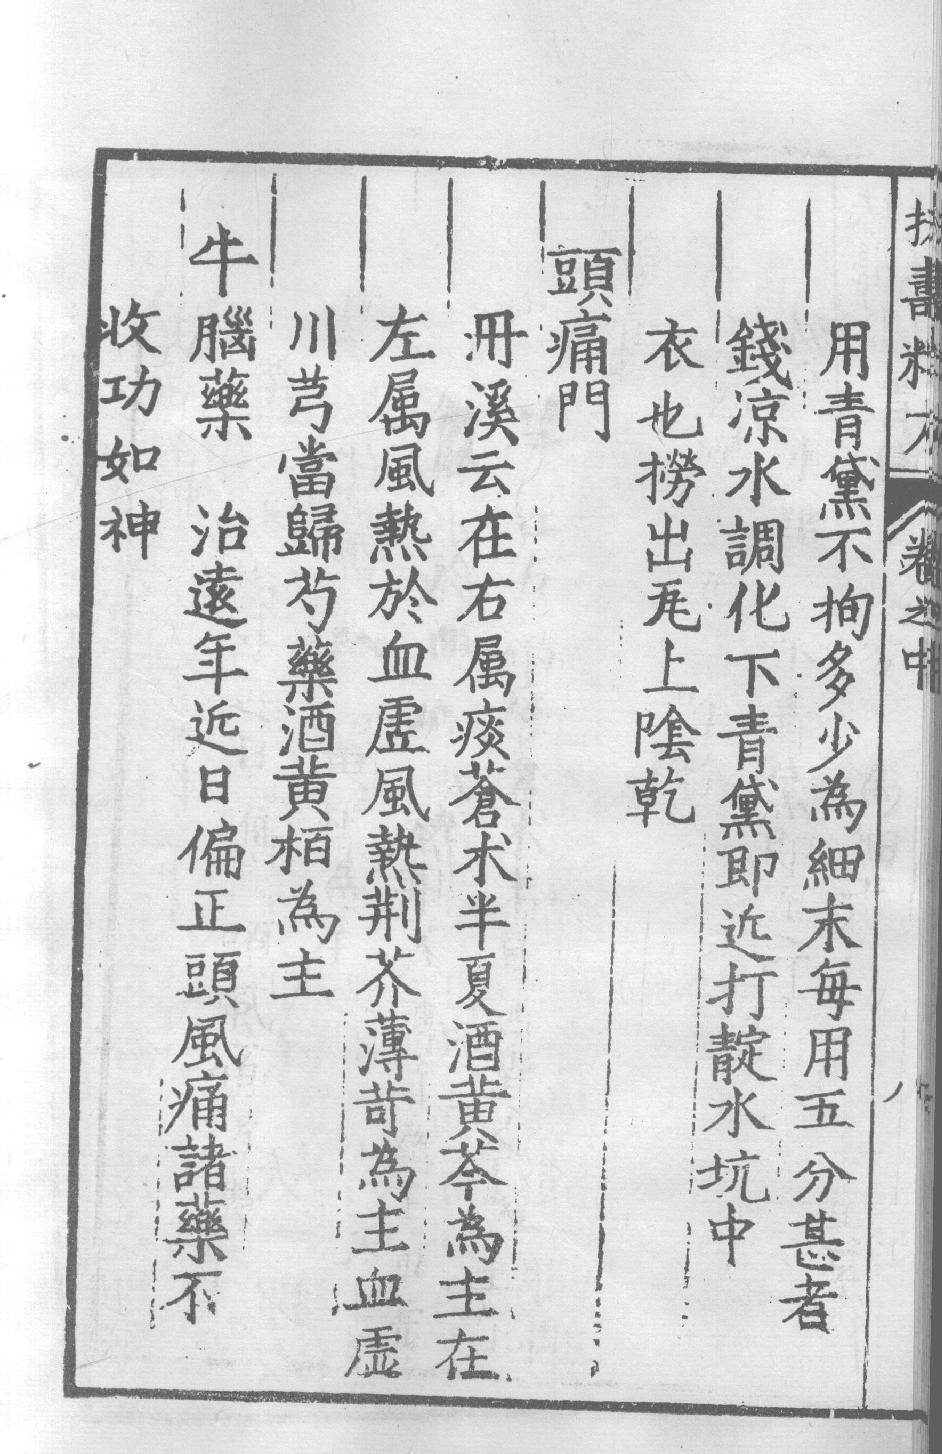 用青黛不拘多少為細末每用五分甚者
錢涼水調化下青黛即近打靛水坑中
衣也撈出瓦上陰乾
頭痛門
丹溪云在右属痰蒼朮半夏酒黄芩為主在
左属風熱於血虚風熱荆芥薄苛為主血虚
川芎當歸芍藥酒黄栢為主
牛腦藥 治遠年近日偏正頭風痛諸藥不
收功如神
卷之中